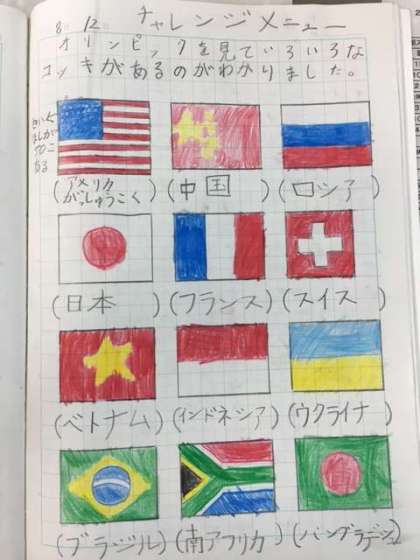 8 12 チャレンジメニュー
オリンピックを見ていろいろな
コッキがあるのがわかりました。
(アメリカがっしゅうこく)
(中国)
(ロシア)
(日本)
(フランス)
(スイス)
(ベトナム)
(インドネシア)
(ウクライナ)
(ブラジル)
(南アフリカ)
(バングラデシュ)